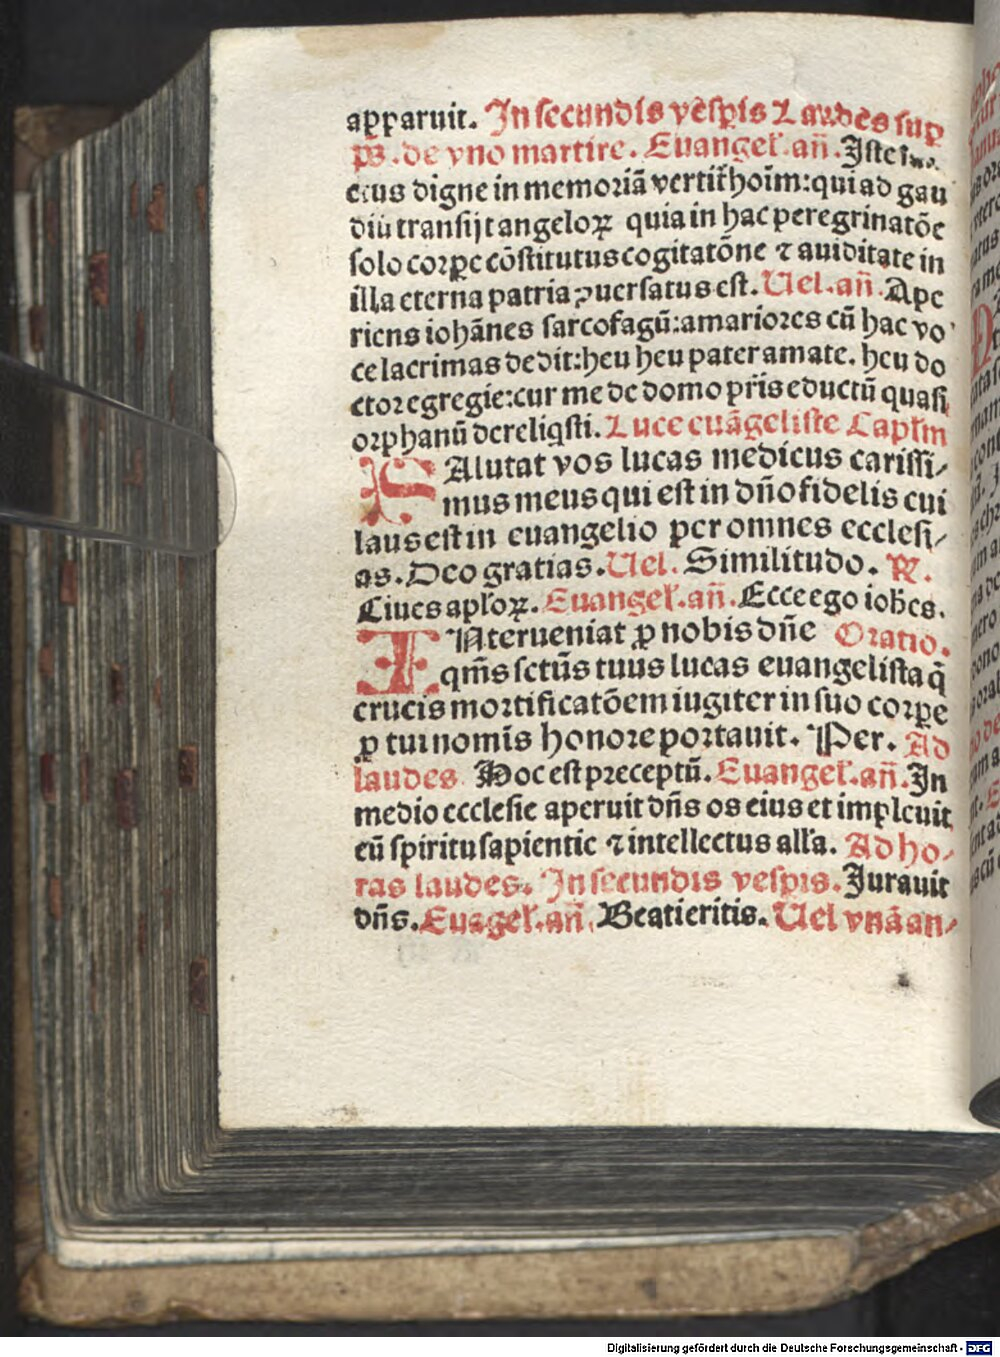 apparuit. In secundis vēspis Laudes sup
ps̄. de vno martire. Euangeł. añ. Iste
ctus digne in memoriā vertit̄ hoīm: qui ad gau
diū transijt angeloꝝ quia in hac peregrinatōe
solo corꝑe cōstitutus cogitatōne ⁊ auiditate in
illa eterna patria ꝯuersatus est. Uel. añ. Ape
riens iohānes sarcofagū: amariores cū hac vo
ce lacrimas dedit: heu heu pater amate. heu do
ctor egregie: cur me de domo pr̄is eductū quasi
orphanū dereliqsti. Luce euāgeliste Capłm
SAlutat vos lucas medicus carissi⸗
mus meus qui est in dño fidelis cui
laus est in euangelio per omnes ecclesi⸗
as. Deo gratias. Uel. Similitudo. ℟.
Ciues apłoꝝ. Euangeł. añ. Ecce ego ioh̄es.
INterueniat ꝓ nobis dñe Oratio.
qm̄s sctūs tuus lucas euangelista q̄
crucis mortificatōem iugiter in suo corꝑe
ꝓ tui nomīs honore portauit. Per. Ad
laudes. Hoc est preceptū. Euangeł. añ. In
medio ecclesie aperuit dñs os eius et impleuit
eū spiritu sapientie ⁊ intellectus ałła. Ad ho⸗
ras laudes. In secundis vespis. Iurauit
dñs. Euāgeł. añ. Beati eritis. Uel vnā an⸗
Digitalisierung gefördert durch die Deutsche Forschungsgemeinschaft - DFG